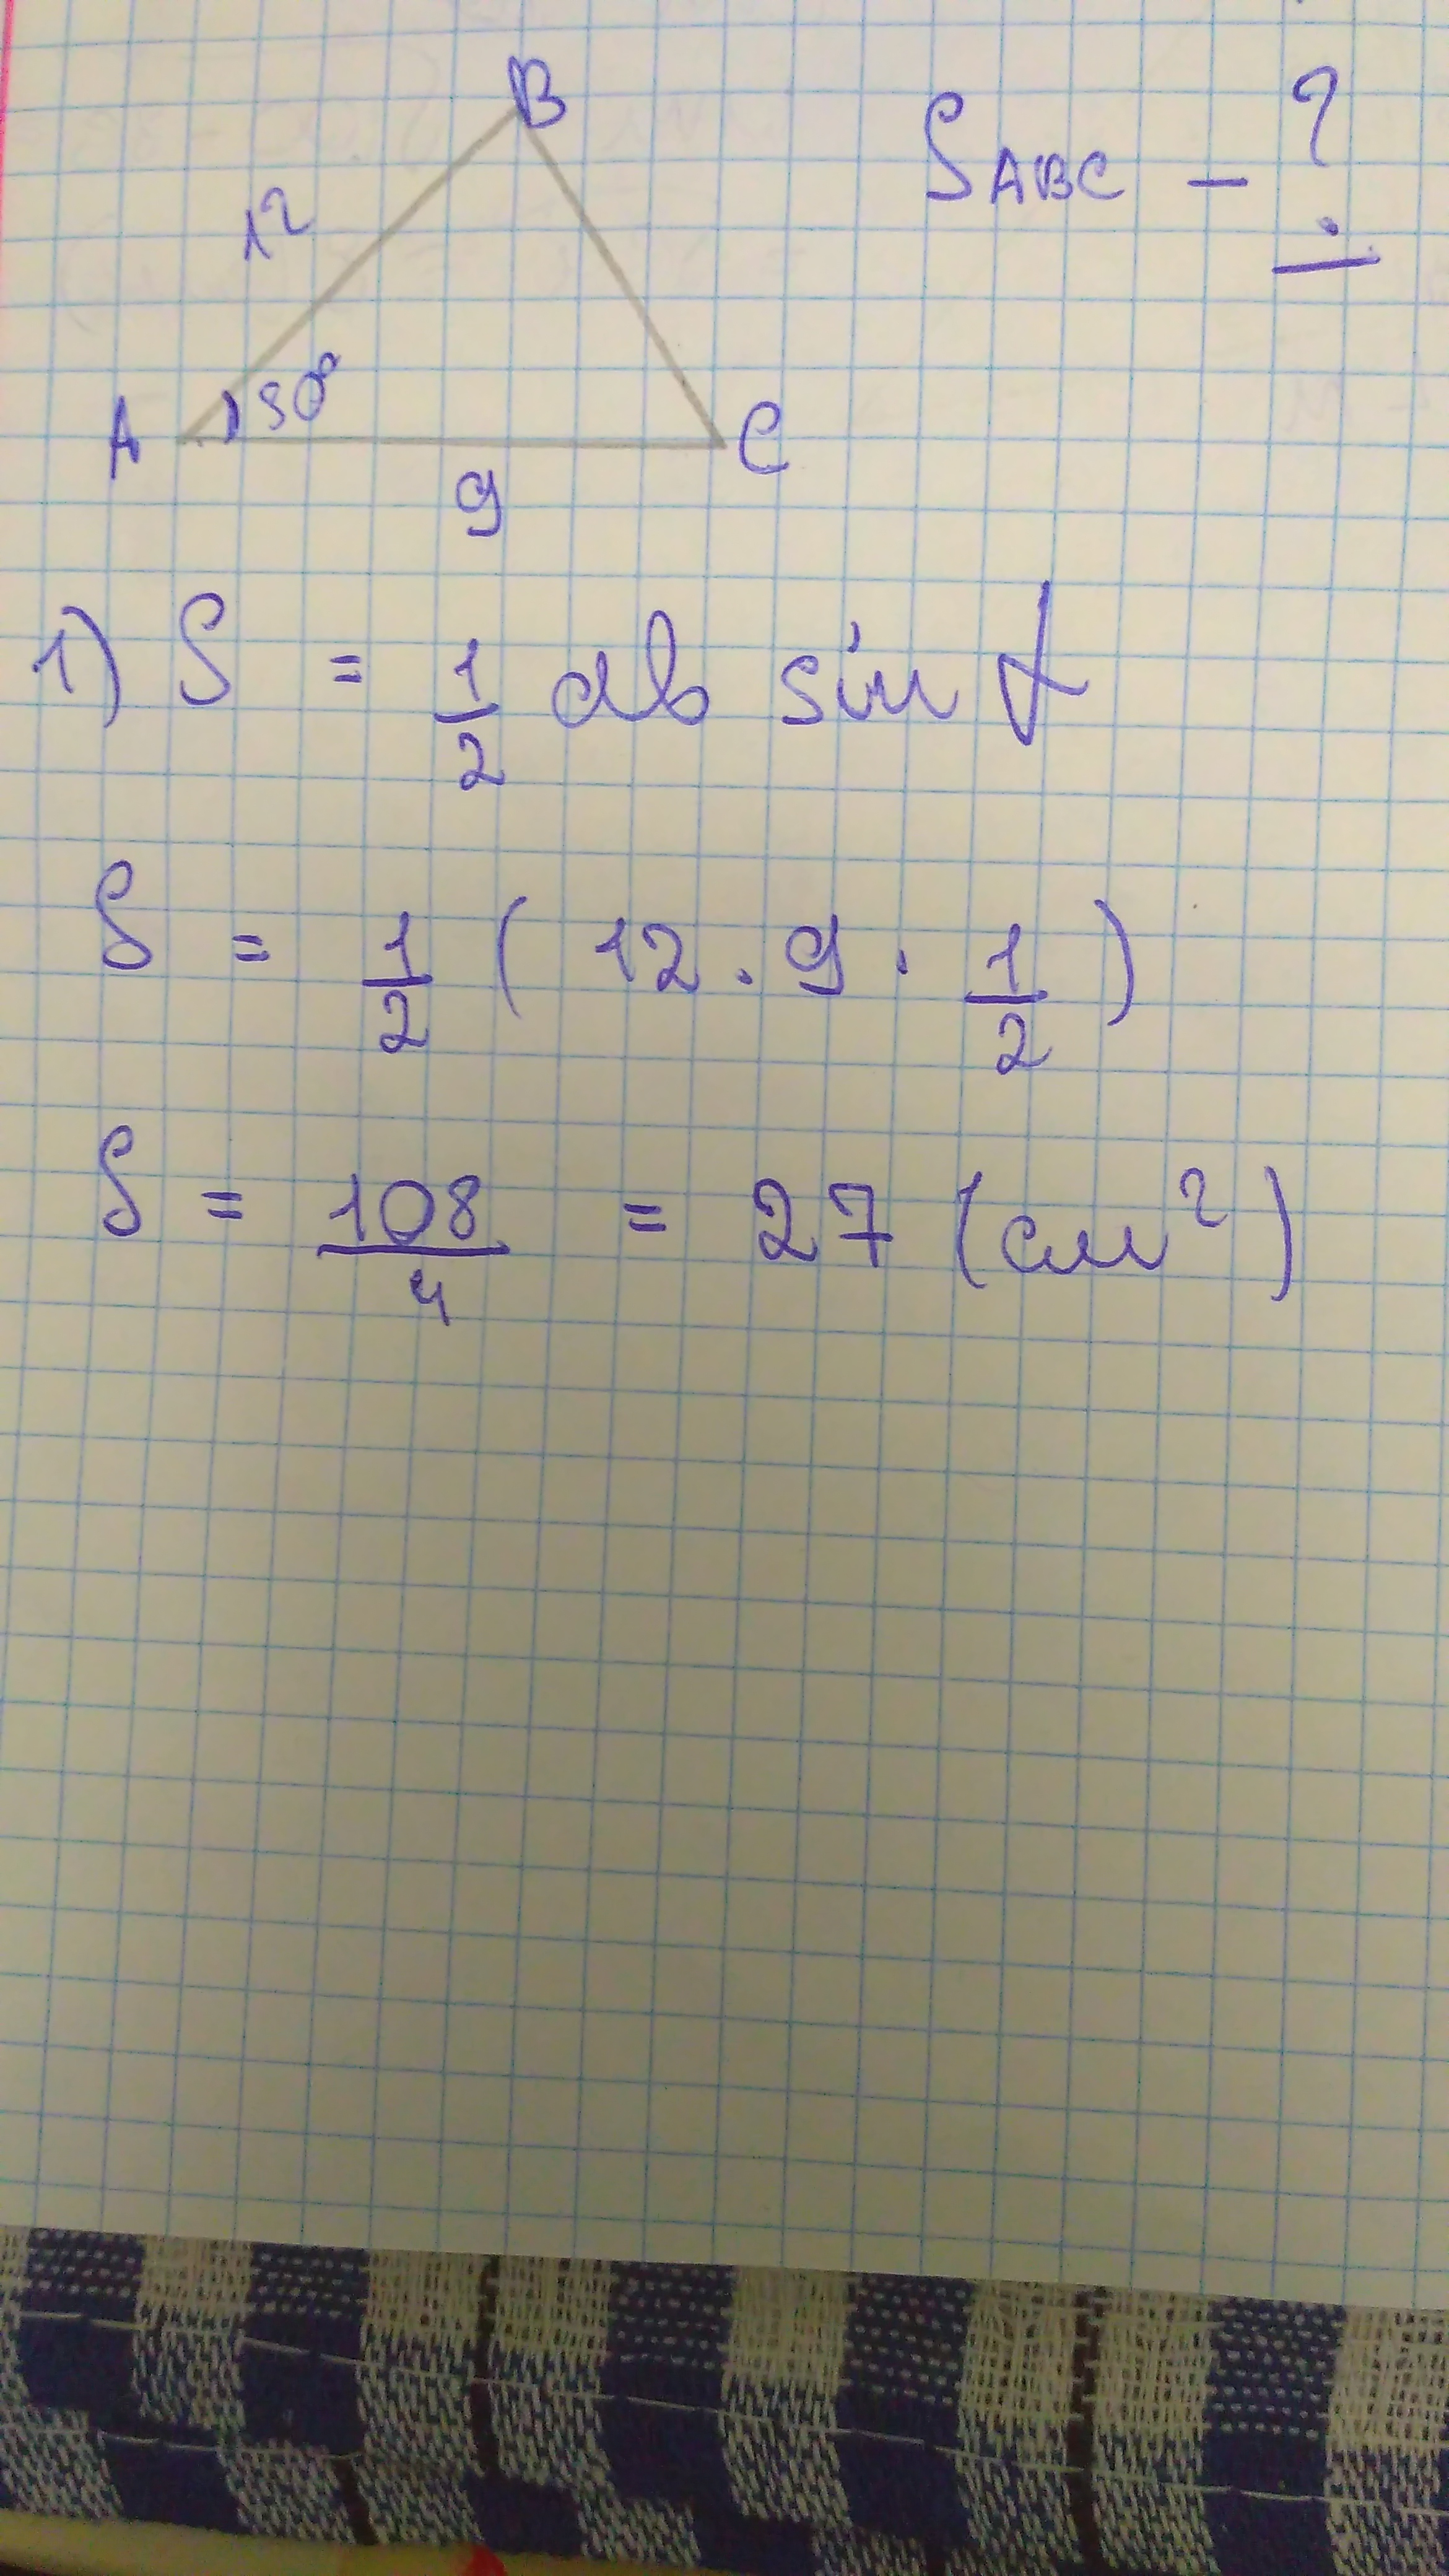 B
S ABC - ?
12
30°
A
C
9
1) S = 1/2 ab sin α
S = 1/2 ( 12 · 9 · 1/2 )
S = 108/4 = 27 (см²)